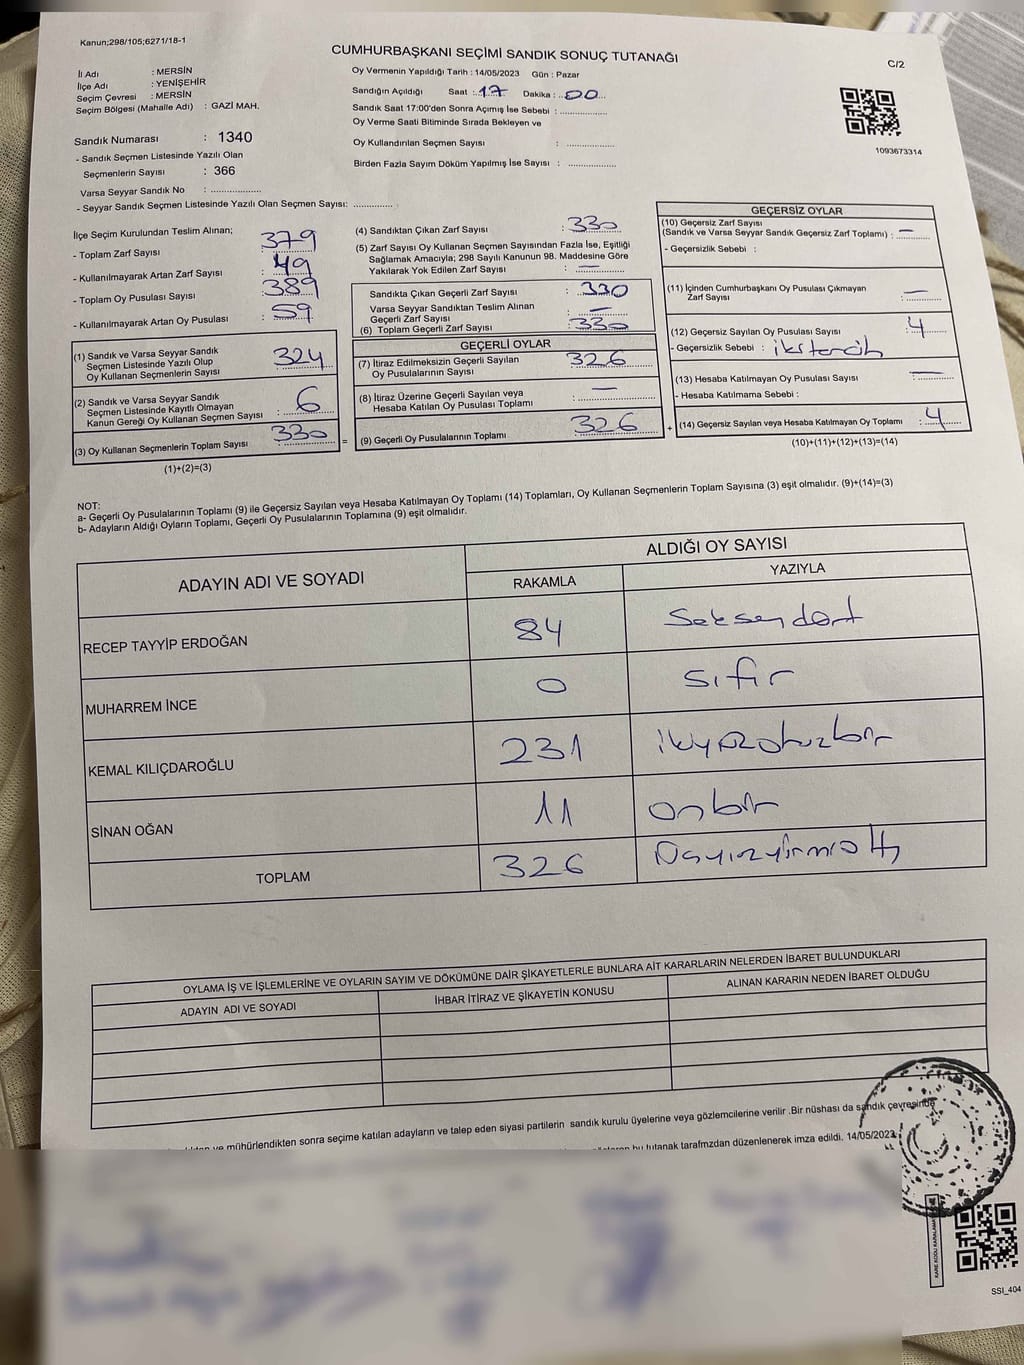 Kanun;298/105;6271/18-1
CUMHURBAŞKANI SEÇİMİ SANDIK SONUÇ TUTANAĞI
C/2
İl Adı : MERSİN
İlçe Adı : YENİŞEHİR
Seçim Çevresi : MERSİN
Seçim Bölgesi (Mahalle Adı) : GAZİ MAH.
Sandık Numarası : 1340
- Sandık Seçmen Listesinde Yazılı Olan
Seçmenlerin Sayısı : 366
Varsa Seyyar Sandık No : ...................
- Seyyar Sandık Seçmen Listesinde Yazılı Olan Seçmen Sayısı: ...............
Oy Vermenin Yapıldığı Tarih : 14/05/2023 Gün : Pazar
Sandığın Açıldığı Saat : 17 Dakika : 00
Sandık Saat 17:00'den Sonra Açımış İse Sebebi : ...............
Oy Verme Saati Bitiminde Sırada Bekleyen ve
Oy Kullandırılan Seçmen Sayısı : ...............
Birden Fazla Sayım Döküm Yapılmış İse Sayısı : ...............
1093673314
İlçe Seçim Kurulundan Teslim Alınan;
- Toplam Zarf Sayısı : 379
- Kullanılmayarak Artan Zarf Sayısı : 49
- Toplam Oy Pusulası Sayısı : 389
- Kullanılmayarak Artan Oy Pusulası : 59
(1) Sandık ve Varsa Seyyar Sandık
Seçmen Listesinde Yazılı Olup
Oy Kullanan Seçmenlerin Sayısı : 324
(2) Sandık ve Varsa Seyyar Sandık
Seçmen Listesinde Kayıtlı Olmayan
Kanun Gereği Oy Kullanan Seçmen Sayısı : 6
(3) Oy Kullanan Seçmenlerin Toplam Sayısı : 330
(1)+(2)=(3)
(4) Sandıktan Çıkan Zarf Sayısı : 330
(5) Zarf Sayısı Oy Kullanan Seçmen Sayısından Fazla İse, Eşitliği
Sağlamak Amacıyla; 298 Sayılı Kanunun 98. Maddesine Göre
Yakılarak Yok Edilen Zarf Sayısı : —
Sandıkta Çıkan Geçerli Zarf Sayısı : 330
Varsa Seyyar Sandıktan Teslim Alınan
Geçerli Zarf Sayısı : —
(6) Toplam Geçerli Zarf Sayısı : 330
GEÇERLİ OYLAR
(7) İtiraz Edilmeksizin Geçerli Sayılan
Oy Pusulalarının Sayısı : 326
(8) İtiraz Üzerine Geçerli Sayılan veya
Hesaba Katılan Oy Pusulası Toplamı : —
= (9) Geçerli Oy Pusulalarının Toplamı : 326
GEÇERSİZ OYLAR
(10) Geçersiz Zarf Sayısı
(Sandık ve Varsa Seyyar Sandık Geçersiz Zarf Toplamı) : —
- Geçersizlik Sebebi :
(11) İçinden Cumhurbaşkanı Oy Pusulası Çıkmayan
Zarf Sayısı : —
(12) Geçersiz Sayılan Oy Pusulası Sayısı : 4
- Geçersizlik Sebebi : iks tercih
(13) Hesaba Katılmayan Oy Pusulası Sayısı : —
- Hesaba Katılmama Sebebi :
+ (14) Geçersiz Sayılan veya Hesaba Katılmayan Oy Toplamı : 4
(10)+(11)+(12)+(13)=(14)
NOT:
a- Geçerli Oy Pusulalarının Toplamı (9) ile Geçersiz Sayılan veya Hesaba Katılmayan Oy Toplamı (14) Toplamları, Oy Kullanan Seçmenlerin Toplam Sayısına (3) eşit olmalıdır. (9)+(14)=(3)
b- Adayların Aldığı Oyların Toplamı, Geçerli Oy Pusulalarının Toplamına (9) eşit olmalıdır.
ADAYIN ADI VE SOYADI ALDIĞI OY SAYISI
RAKAMLA YAZIYLA
RECEP TAYYİP ERDOĞAN 84 Seksendört
MUHARREM İNCE 0 sıfır
KEMAL KILIÇDAROĞLU 231 ikiyüzotuzbir
SİNAN OĞAN 11 onbir
TOPLAM 326
OYLAMA İŞ VE İŞLEMLERİNE VE OYLARIN SAYIM VE DÖKÜMÜNE DAİR ŞİKAYETLERLE BUNLARA AİT KARARLARIN NELERDEN İBARET BULUNDUKLARI
ADAYIN ADI VE SOYADI İHBAR İTİRAZ VE ŞİKAYETİN KONUSU ALINAN KARARIN NEDEN İBARET OLDUĞU
ve mühürlendikten sonra seçime katılan adayların ve talep eden siyasi partilerin sandık kurulu üyelerine veya gözlemcilerine verilir .Bir nüshası da sandık çevresinde
bu tutanak tarafmzdan düzenlenerek imza edildi. 14/05/2023
KARE KODU KARALAMAYINIZ
SSI_404